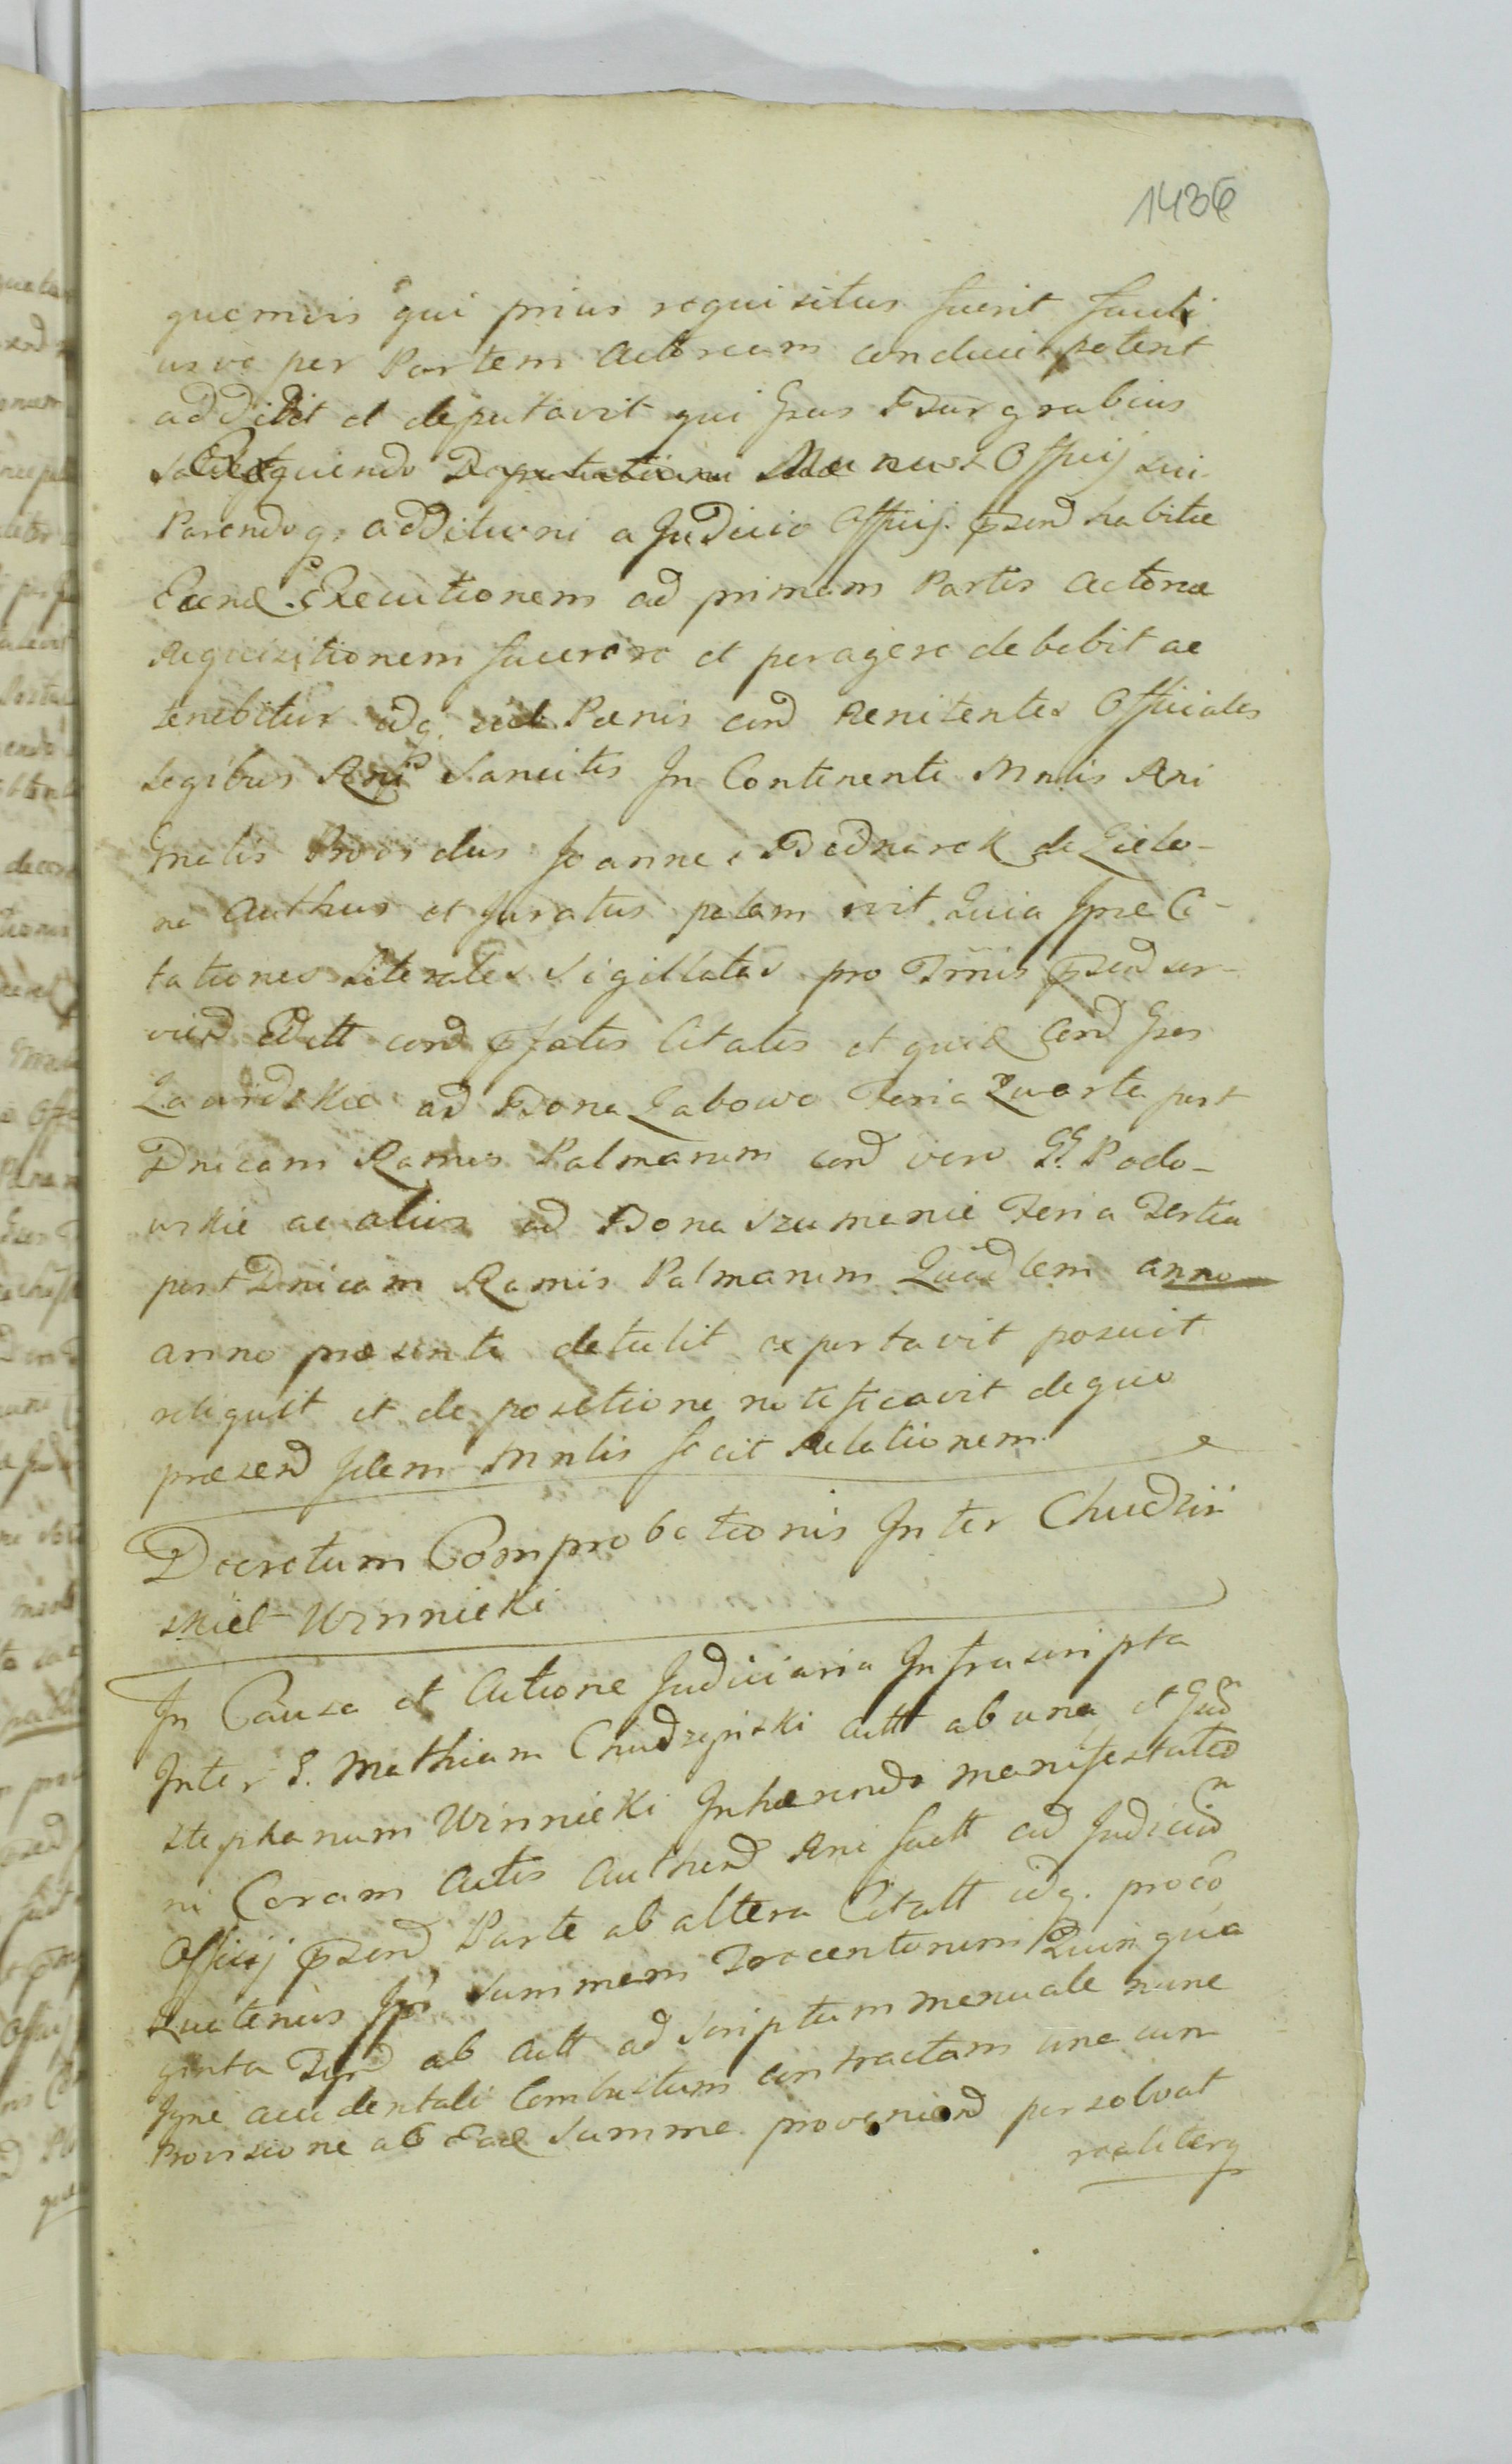 1436
quemvis qui prius requisitus fuerit facili
usve per Partem Actoream conduci potent
addidit et deputavit qui Gsus Burgrabius
exequendo Munus Officij sui
Parendoq. additioni a Judicio Officij pnsend habitæ
Eand Executionem ad primam Partis Actoreæ
Requisitionem facere et peragere debebit ac
tenebitur idq. sub Pœnis cond Renitentes Officiales
Legibus Regni Sancitis In Continenti Mnlis Rni
Gnalis Providus Joannes Bednarek de Zielo-
na Authus et Juratus palam rvit Quia Ipse Ci-
tationes Literales Sigillatas pro Trnis pnsend ser-
viend Edtt cond pfatis Citatis et quid cond Gsos
Zawidzkie ad Bona Zabowo Feria Quarta post
Dnicam Ramis Palmarum cond vero GG. Pado-
wskie ac alios ad Bona Szumanie Feria Tertia
post Dnicam Ramis Palmarum Quadlem anno
anno præsenti detulit exportavit posuit
reliquit et de positione notificavit de quo
præsend Idem Mnlis fecit Relationem
Decretum Comprobationis Inter Chudziń
ski et Winnicki
In Causa et Actione Judiciaria Infrascripta
Inter G. Mathiam Chudzyński Actt ab una et Gnd
Stephanum Winnicki Inhærendo manifestatio
ni Coram Actis Authend Rni factt ad Judicium
Officij pnsend Parte ab altera Citatt idq. pro eo
Quatenus Ipsi Summam Trecentorum Quinqua
ginta Tynf ab Actt ad Scriptum manuale nunc
Igne accidentali Combustum contractam una cum
Provisione ab Ead Summa proveniend persolvat
realiterq